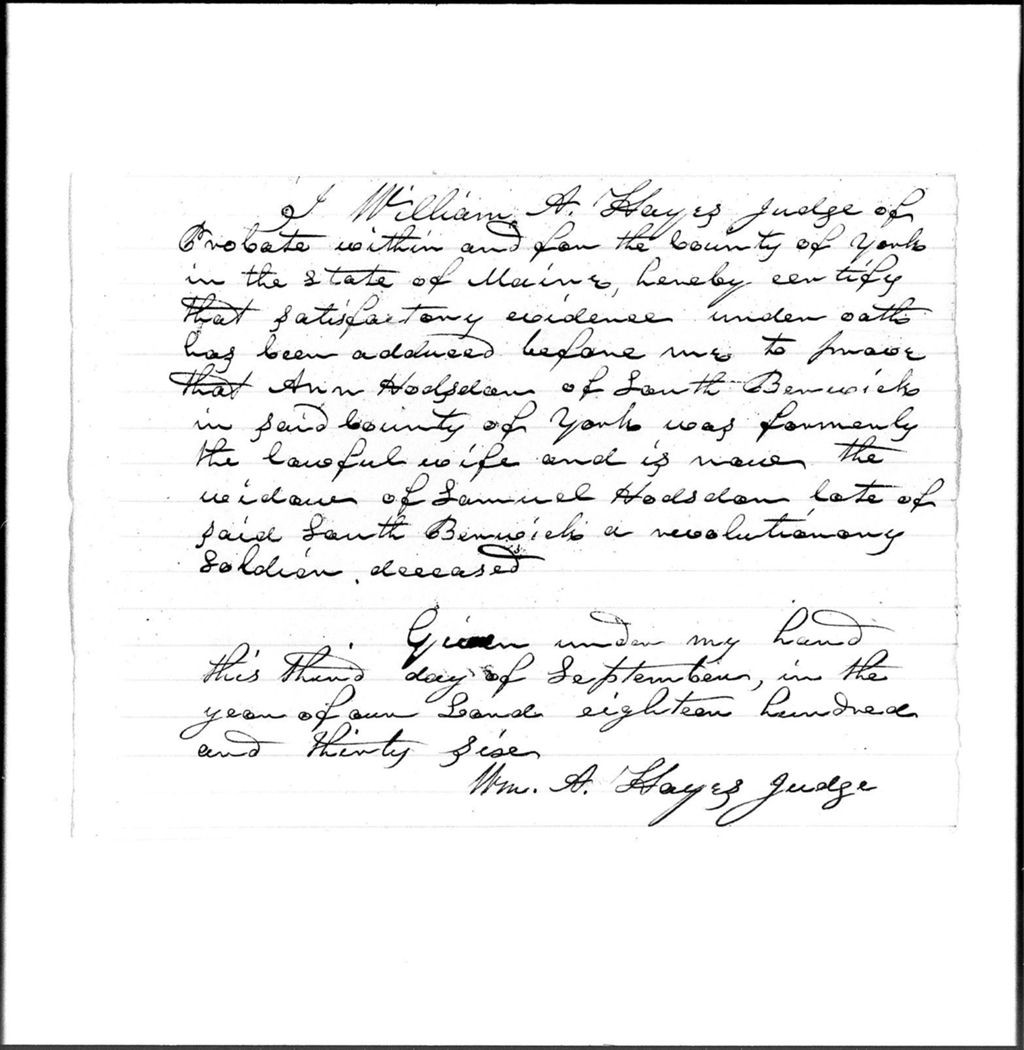 I William A. Hayes Judge of
Probate within and for the County of York
in the State of Maine, hereby certify
that satisfactory evidence under oath
has been adduced before me to prove
that Ann Hodsdon of South Berwick
in said County of York was formerly
the lawful wife and is now the
widow of Samuel Hodsdon late of
said South Berwick a revolutionary
Soldier, deceased
Given under my hand
this Third day of September, in the
year of our Lord eighteen hundred
and thirty six
Wm. A. Hayes Judge